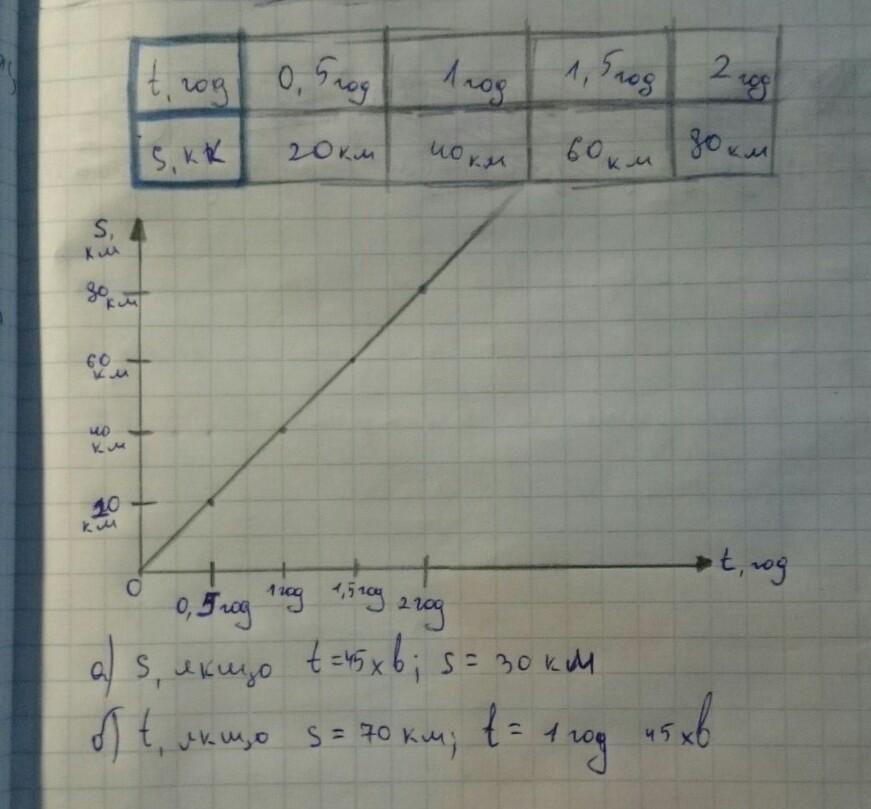 t, год 0,5год 1год 1,5год 2год
S, кк 20км 40км 60км 80км
S,
км
80
км
60
км
40
км
20
км
0
0,5год 1год 1,5год 2год
t, год
а) S, якщо t=45хв; S = 30 км
б) t, якщо S = 70 км; t = 1 год 45хв